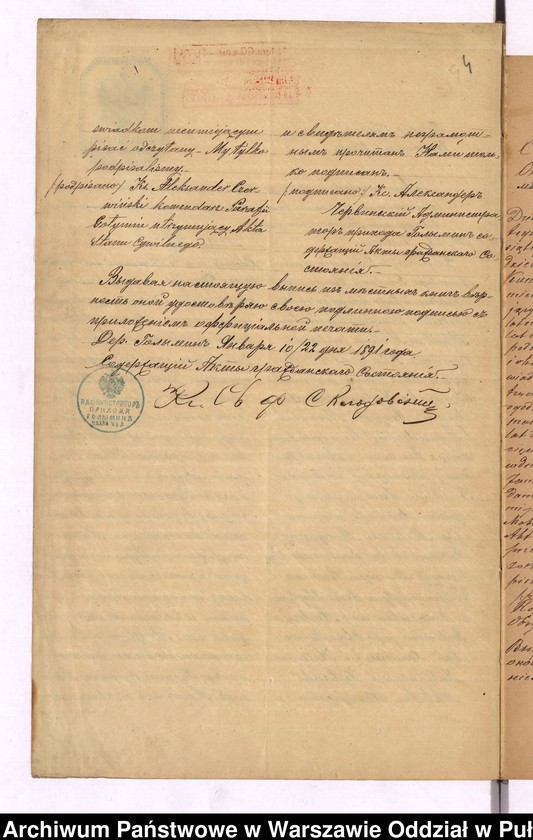 4
świadkom nieumiejącym
pisać odczytany. My tylko
podpisaliśmy.
(podpisano) Ks. Aleksander Czer
wiński komendarz Parafji
Gołymin utrzymujący Akta
Stanu Cywilnego.
и свидѣтелямъ неграмот-
нымъ прочитан. Нами толь-
ко подписан.
(подписано) Кс. Александеръ
Червинскій Администра
торъ прихода Голыминъ со-
держащій Акты Гражданскаго Со-
стоянія.
Выдавая настоящую выпись изъ мѣстныхъ книгъ вѣр-
ность оной удостовѣряю своею подлинною подписью съ
приложеніемъ оффиціальной печати.
Дер. Голыминъ Января 10/22 дня 1891 года.
Содержащій Акты Гражданскаго Состоянія.
Кс.
АДМИНИСТРАТОРЪ
ПРИХОДА
ГОЛЫМИНЪ
Archiwum Państwowe w Warszawie Oddział w Puł